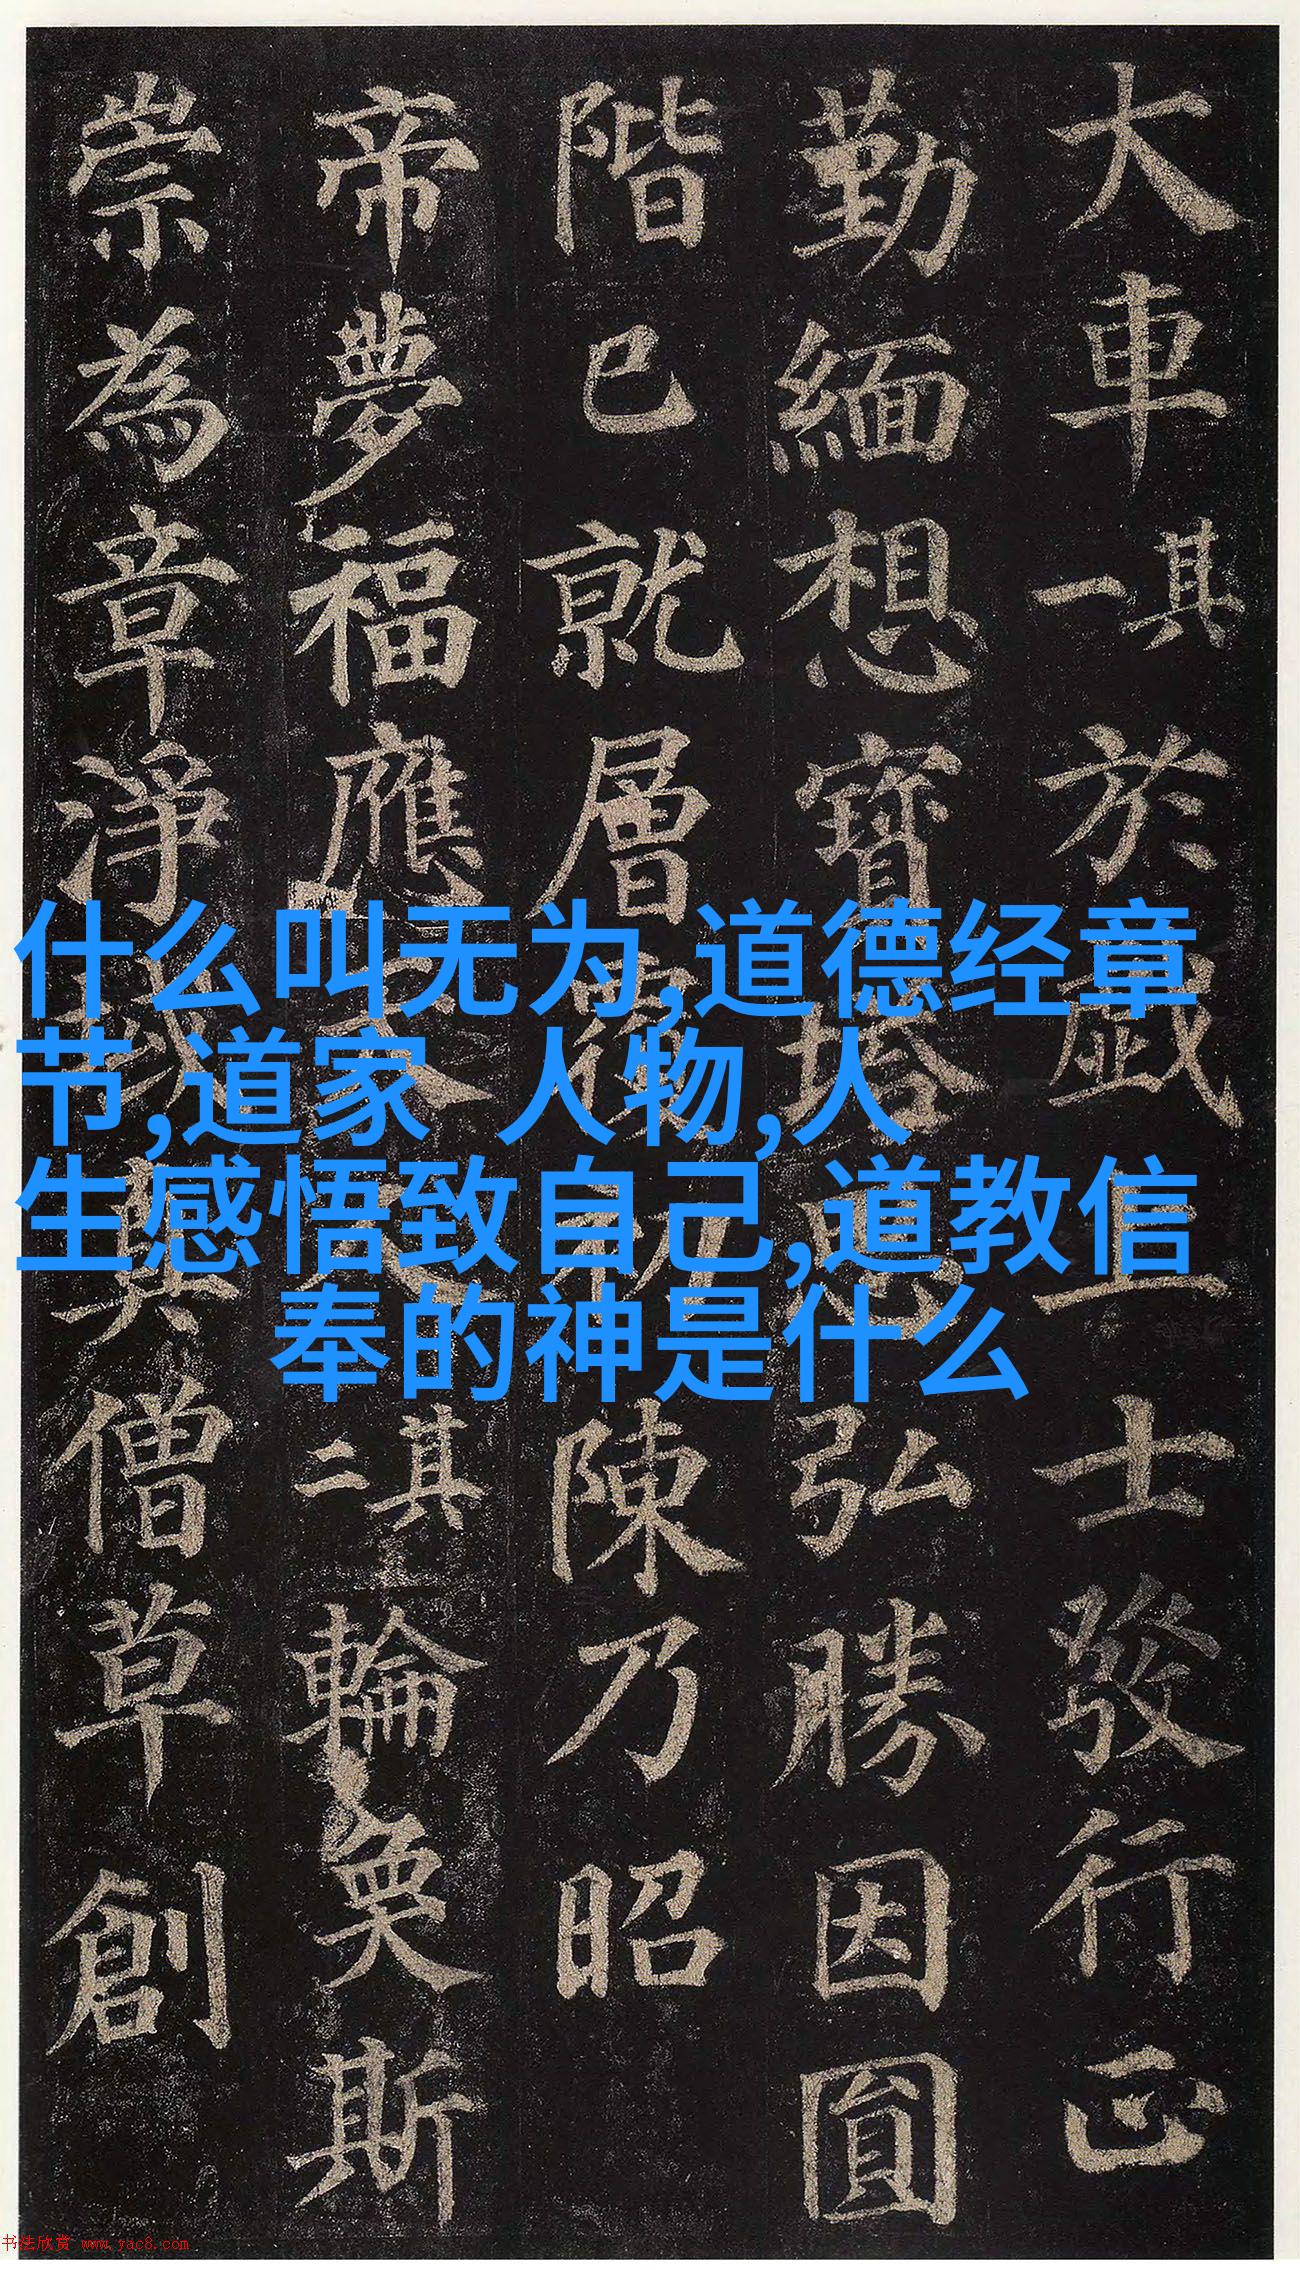 大車其一於戲上士發行正
勤緬想寶塔思弘勝因圓
階已就層覆初陳乃昭
帝夢福應天人其二輪奐斯
崇為章淨域真僧草創
什么叫无为,道德经章
节,道家 人物,人
生感悟致自己,道教信
奉的神是什么
书法欣赏 www.yac8.com